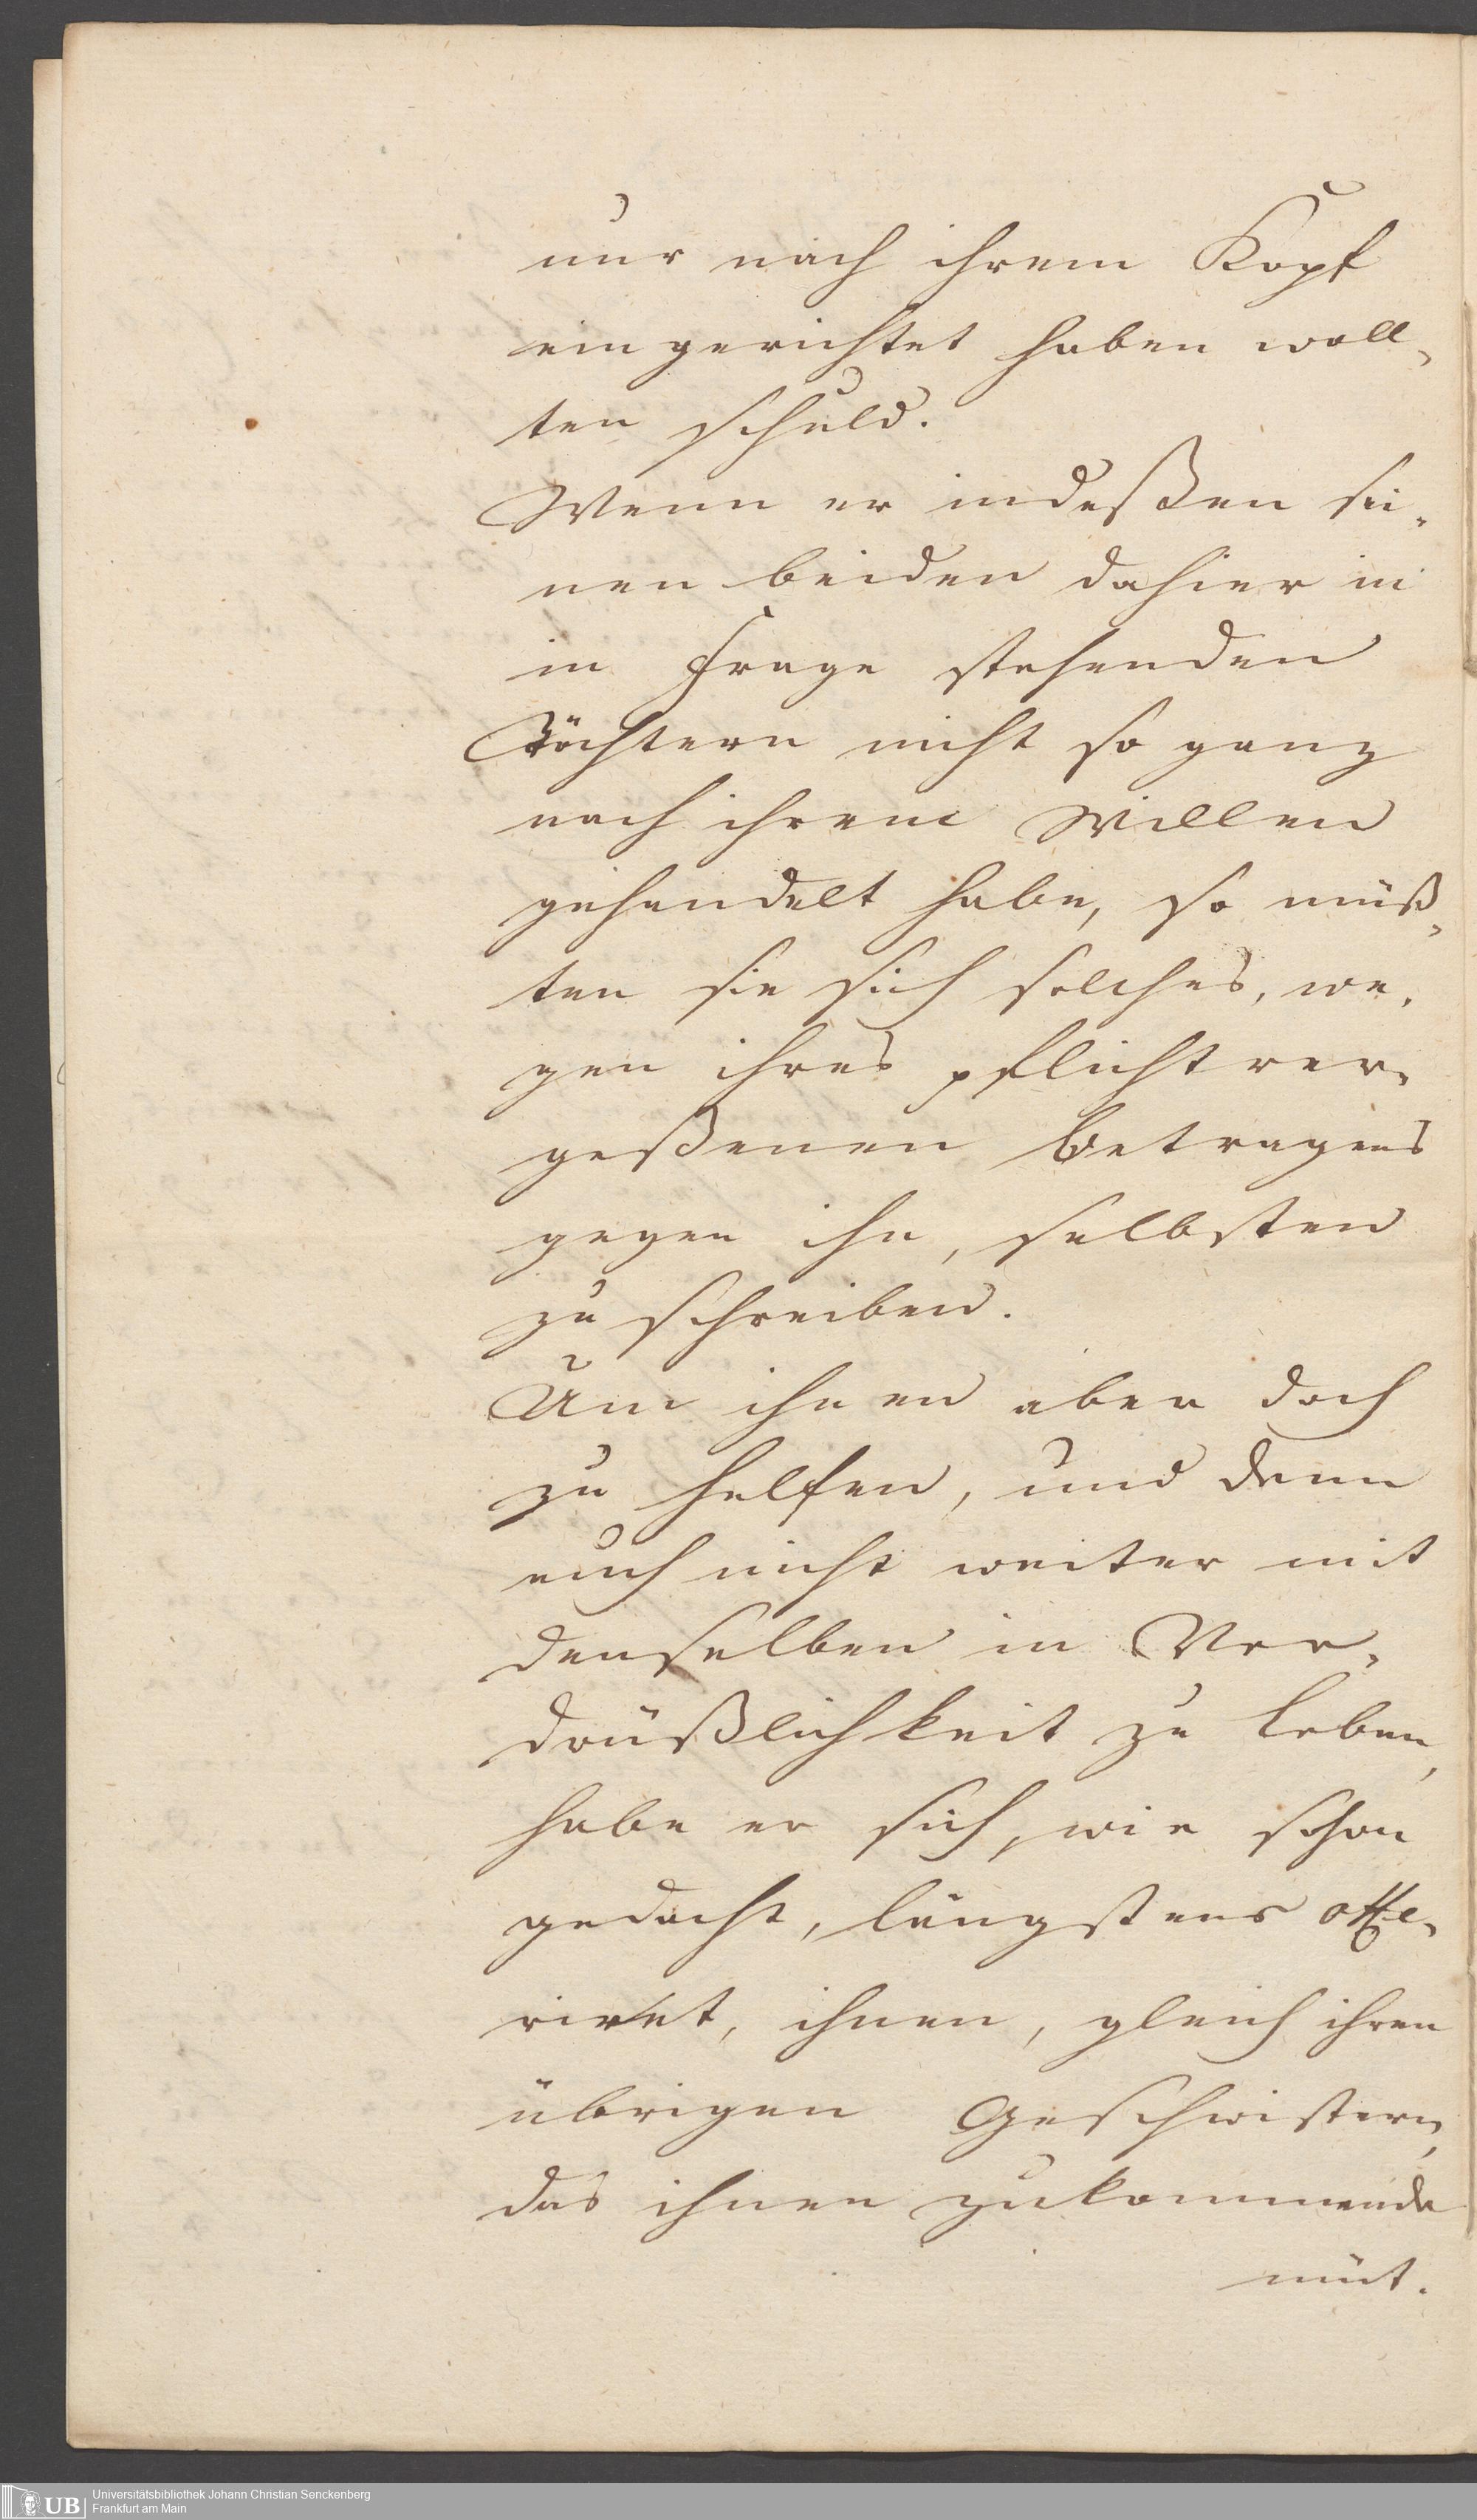 nur nach ihrem Kopf
eingerichtet haben woll-
ten schuld.
Wenn er indeßen sei-
nen beiden dahier in
in Frage stehenden
Töchtern nicht so ganz
nach ihrem Willen
gehandelt habe, so müß-
ten sie sich solches, we-
gen ihres pflichtver-
geßenen Betragens
gegen ihn, selbsten
zu schreiben.
Um ihnen aber doch
zu helfen, und denn
auch nicht weiter mit
denselben in Ver-
drüßlichkeit zu leben,
habe er sich, wie schon
gedacht, längstens offe-
riret, ihnen, gleich ihren
übrigen Geschwistern,
das ihnen zukommende
müt.
UB
Universitätsbibliothek Johann Christian Senckenberg
Frankfurt am Main